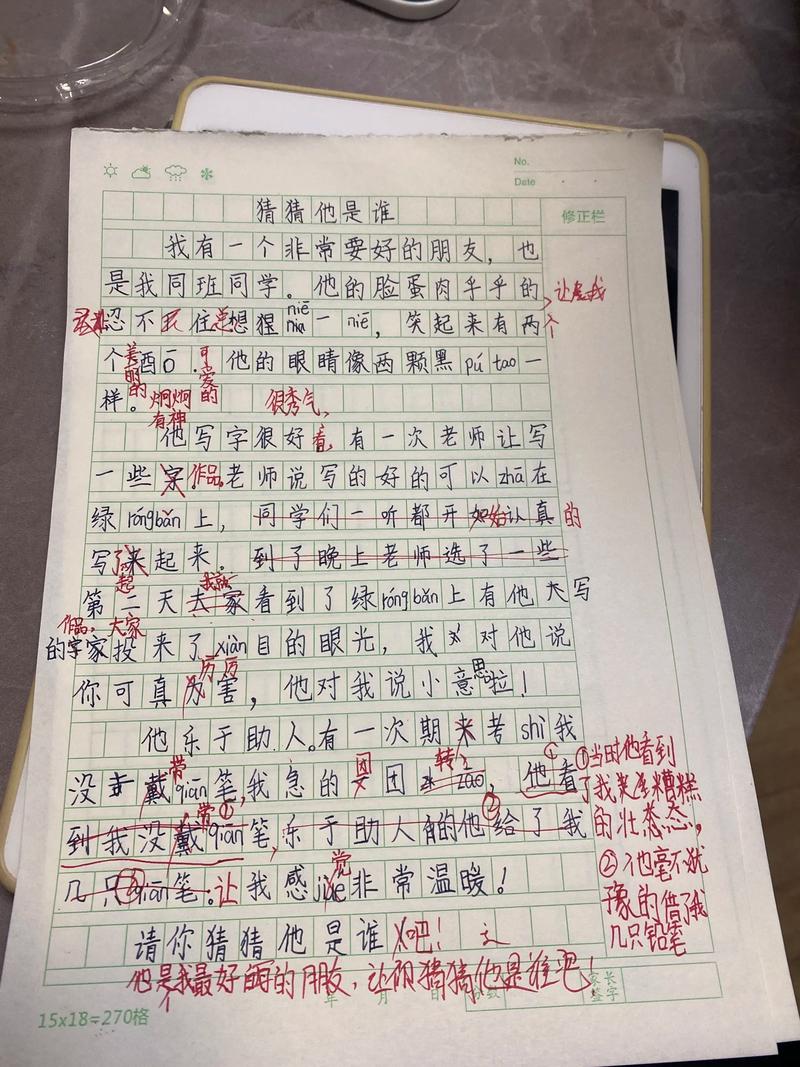 No.
Date
修正栏
猜猜他是谁
我有一个非常要好的朋友，也
是我同班同学。他的脸蛋肉乎乎的
让
忍不住总想捏 niē 一 niē，笑起来有两个
个美丽的酒 ō 可爱的他的眼睛像两颗黑 pú tao 一
样。炯炯有神
很秀气，
他写字很好看，有一次老师让写
一些字作品。老师说写的好的可以 zhā 在
绿 róng bǎn 上，同学们一听都开始认真的
写了起来。到了晚上老师选了一些
我就
第二天去家看到了绿 róng bǎn 上有他写
作品。大家
的字家投来了 xiàn 目的眼光，我对他说
你可真厉害，他对我说小意思啦！
他乐于助人。有一次期末考 shì 我
没带戴 qiān 笔，我急的团团转，他看
①当时他看到
了我
糟糕
到我没戴带 qiān 笔，乐于助人的他给了我
的状态，
几只 qiān 笔。让我感 jué 觉非常温暖！
②他毫不犹
豫的借了我
几只铅笔
请你猜猜他是谁吧！
他是我最好的朋友，让你猜猜他是谁吧！
年 月 日
家长签字
15x18=270格